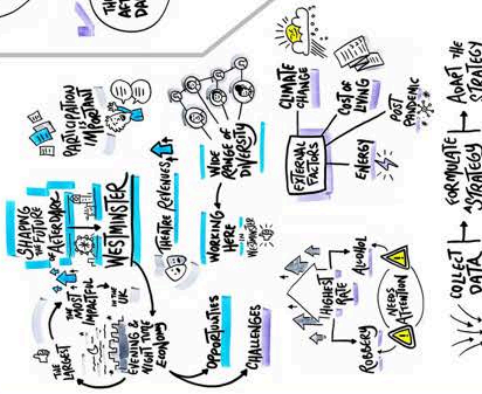 TH
AFT
DA
SHAPING
THE FUTURE
OF AFTERDARK
WESTMINSTER
PARTICIPATION
IS
IMPORTANT
THE LARGEST
THE MOST
IMPACTFUL
IN THE
UK
EVENING &
NIGHT TIME
ECONOMY
THEATRE REVENUES
WIDE
RANGE OF
DIVERSITY
WORKING
HERE
IN
WESTMINSTER
OPPORTUNITIES
CHALLENGES
HIGHEST
RATE
ROBBERY
ALCOHOL
NEEDS
ATTENTION
EXTERNAL
FACTORS
CLIMATE
CHANGE
COST OF
LIVING
POST
PANDEMIC
ENERGY
COLLECT
DATA
FORMULATE
A STRATEGY
ADAPT THE
STRATEGY